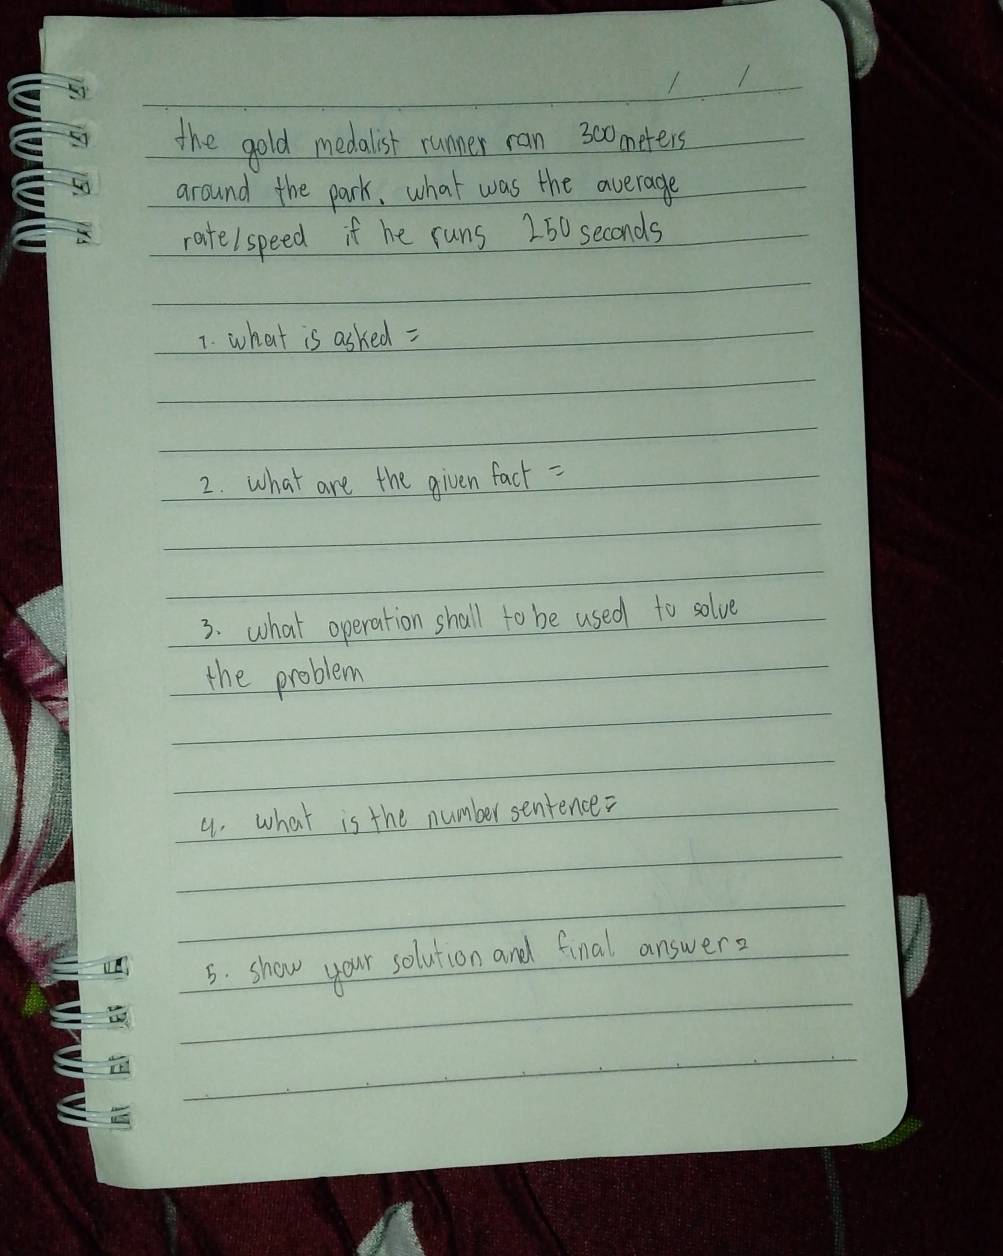 / /
the gold medalist runner ran 300 meters
around the park. what was the average
rate/speed if he runs 250 seconds
1. what is asked =
2. what are the given fact =
3. what operation shall to be used to solve
the problem
4. what is the number sentence =
5. show your solution and final answer =